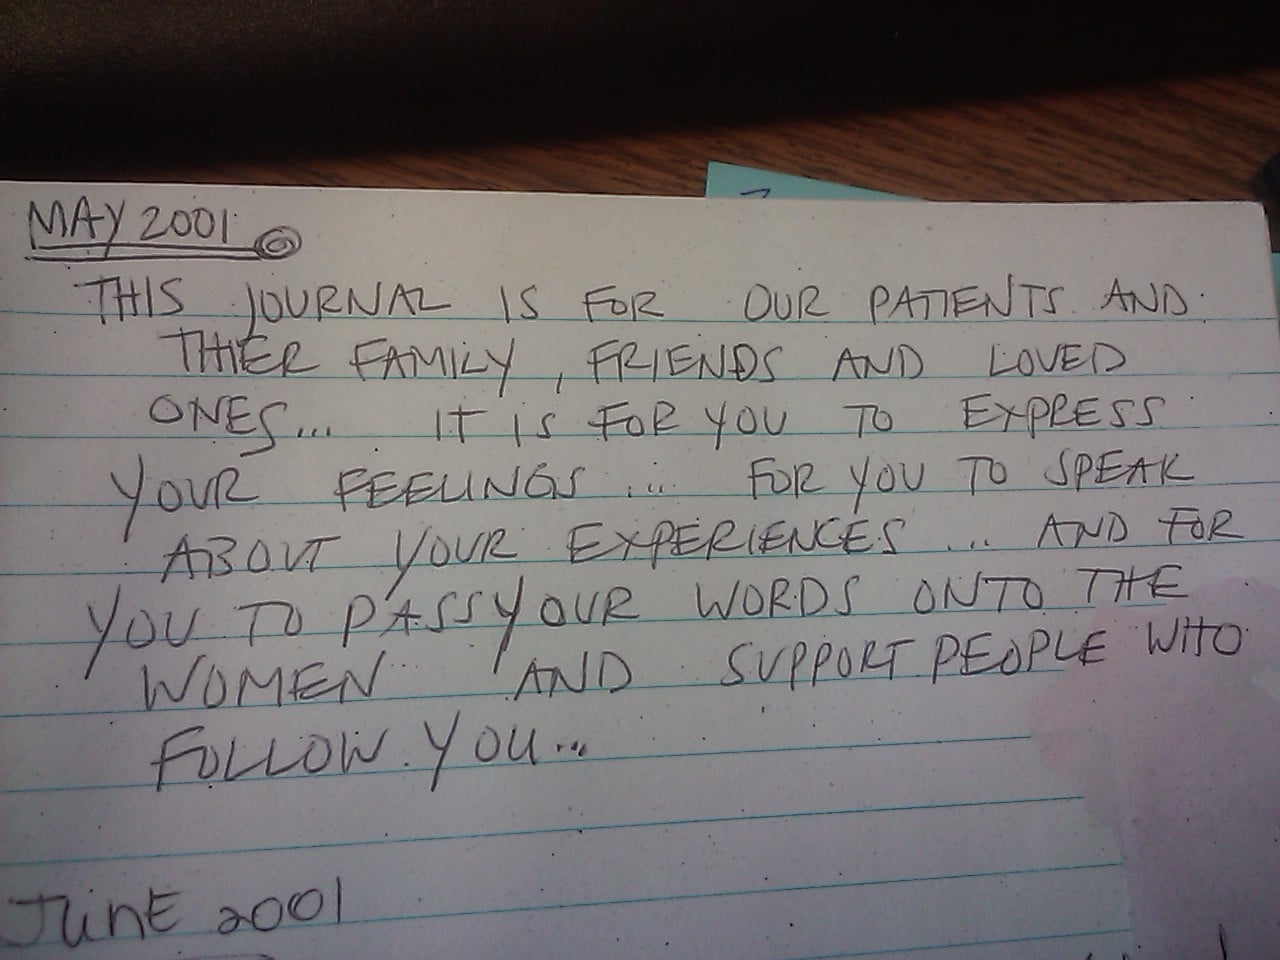 MAY 2001
THIS JOURNAL IS FOR OUR PATIENTS AND
THIER FAMILY, FRIENDS AND LOVED
ONES... IT IS FOR YOU TO EXPRESS
YOUR FEELINGS ... FOR YOU TO SPEAK
ABOUT YOUR EXPERIENCES ... AND FOR
YOU TO PASS YOUR WORDS ONTO THE
WOMEN AND SUPPORT PEOPLE WHO
FOLLOW YOU...
JUNE 2001